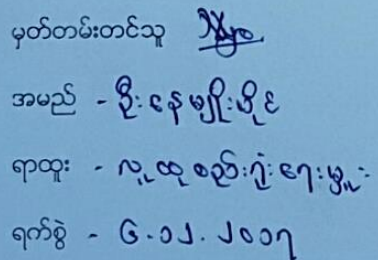 မှတ်တမ်းတင်သူ
အမည် - ဦးနေမျိုးဟိုင်
ရာထူး - လူထုစည်းရုံးရေးမှူး
ရက်စွဲ - ၆.၁၂.၂၀၁၇